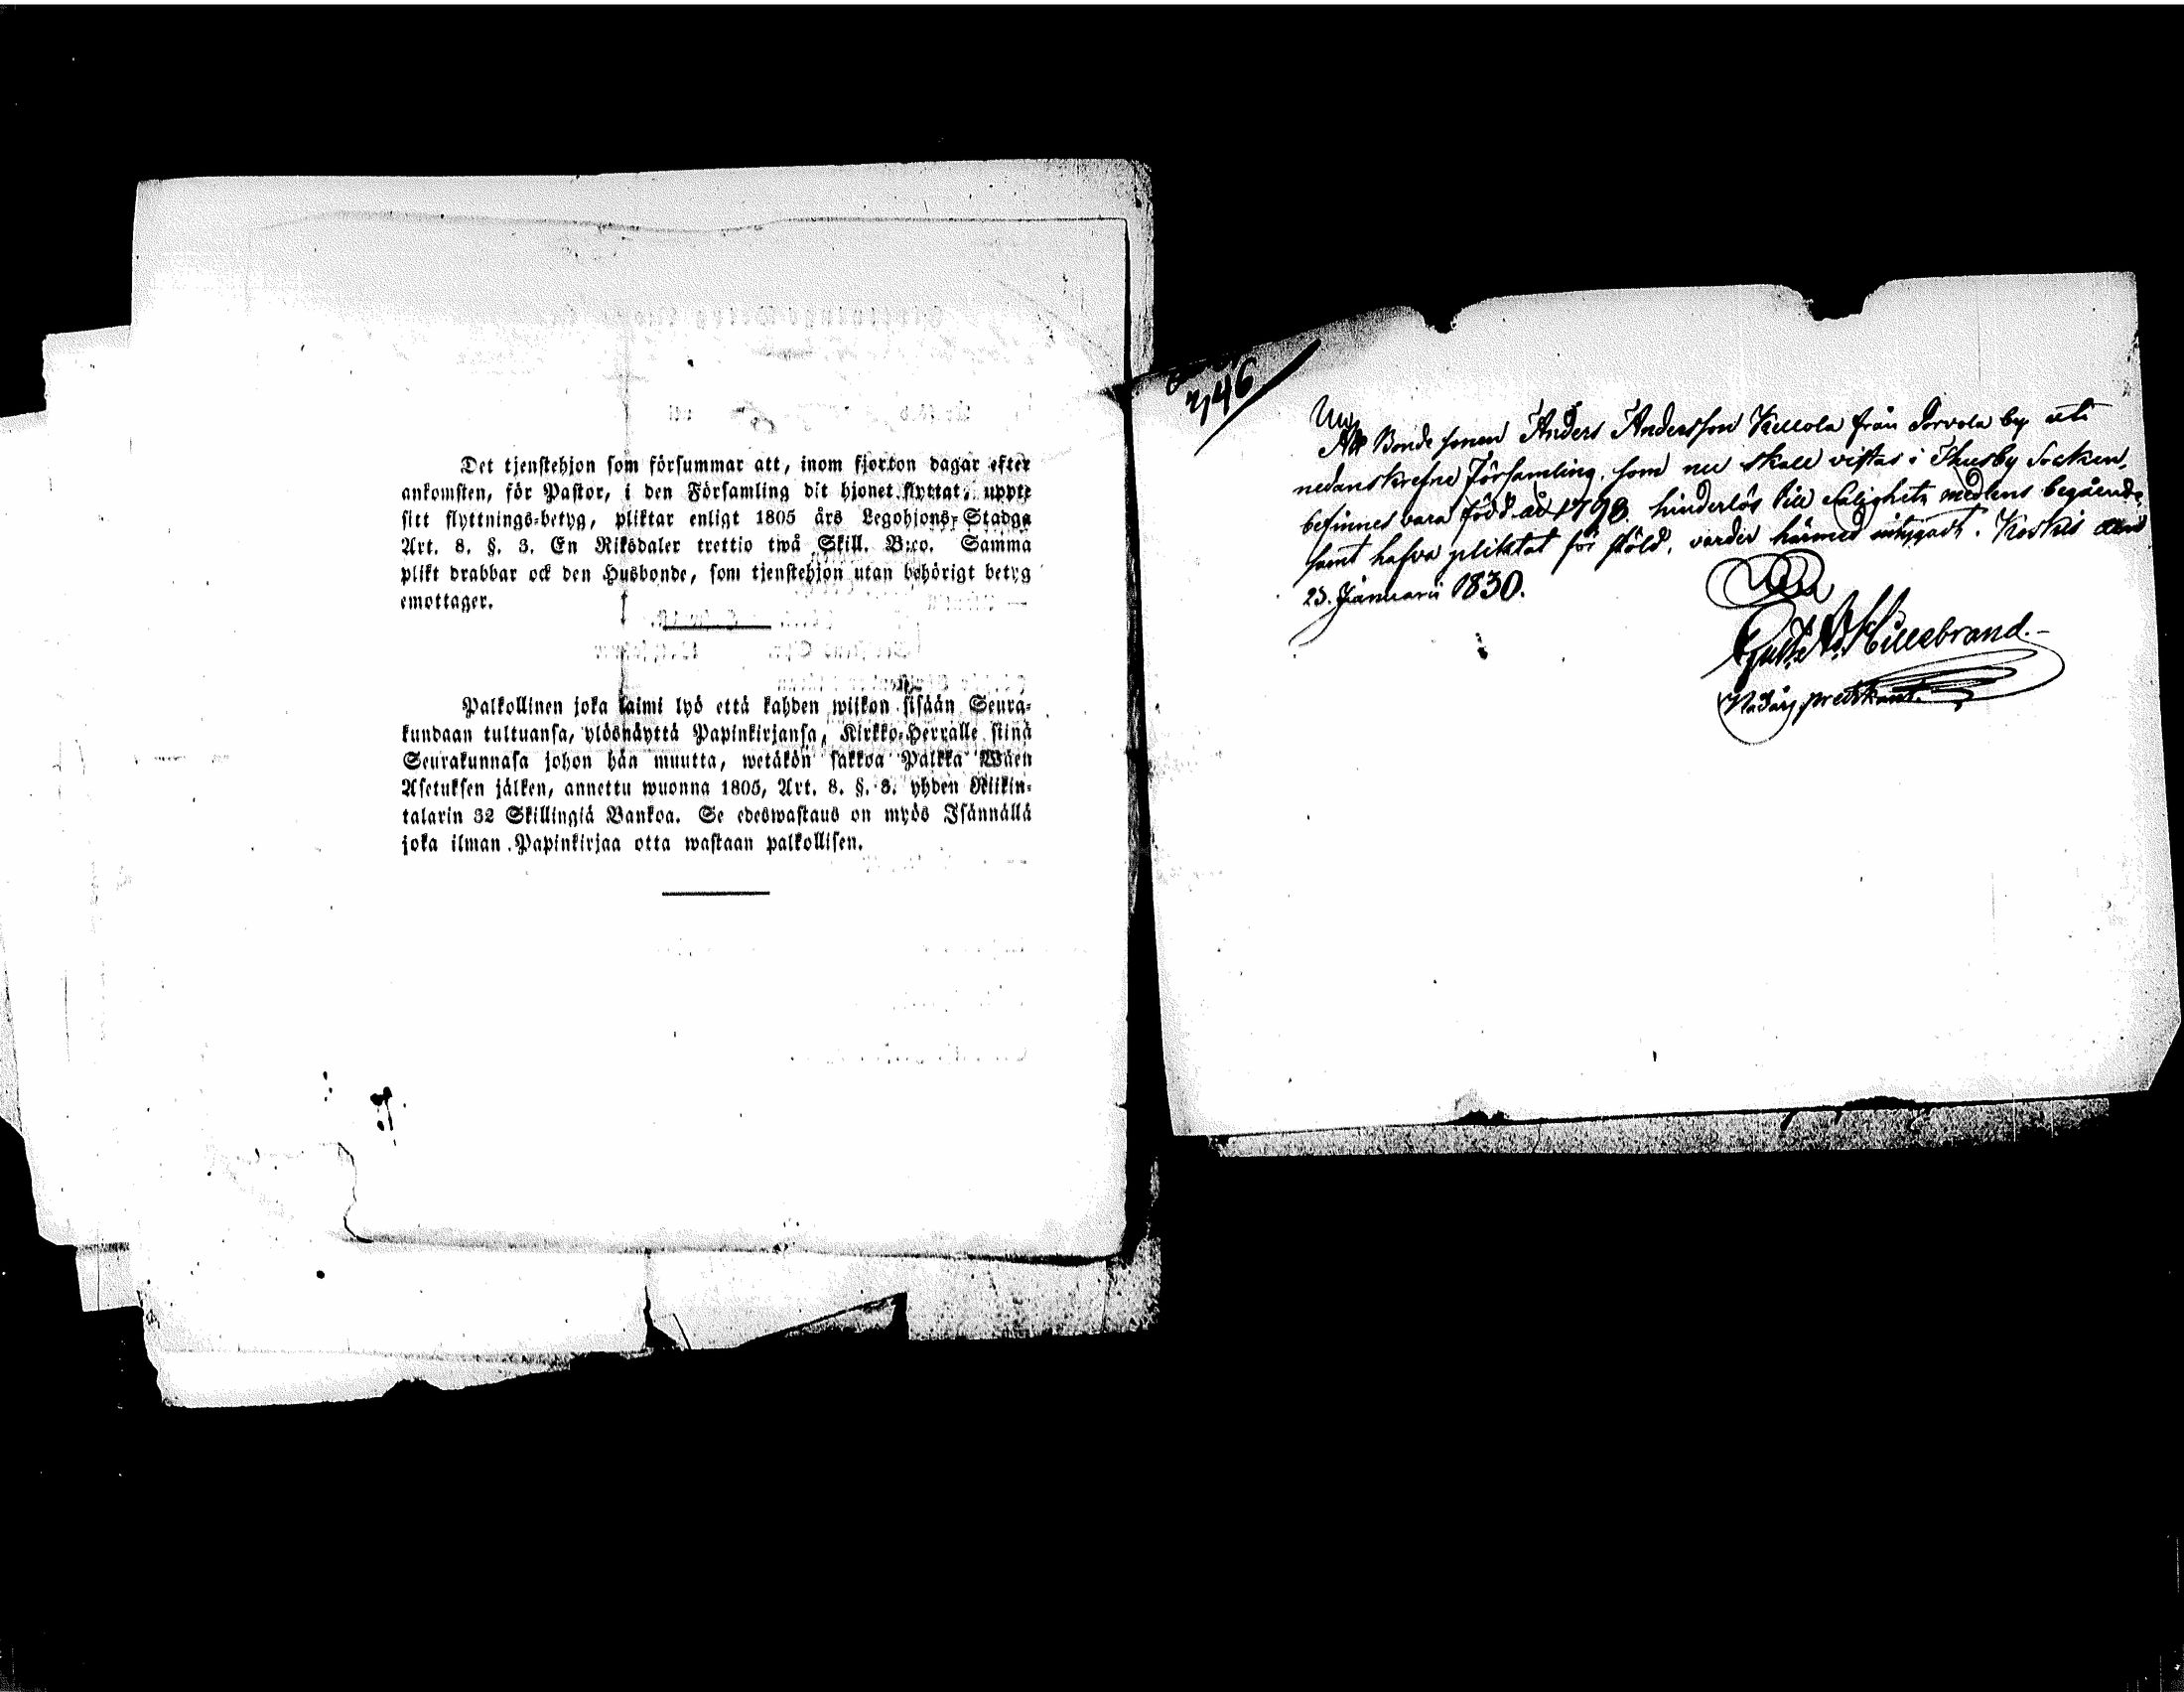 Det tjenstehjon som försummar att, inom fjorton dagar efter
ankomsten, för Pastor, i den Församling dit hjonet flyttat, uppte
sitt flyttnings-betyg, pliktar enligt 1805 års Legohjons-Stadga
Art. 8. §. 3. En Riksdaler trettio twå Skill. B:co. Samma
plikt drabbar ock den Husbonde, som tjenstehjon utan behörigt betyg
emottager.
Palkollinen joka laimi lyö että kahden wiikon sisään Seura-
kundaan tultuansa, ylösnäyttä Papinkirjansa, Kirkko-Herralle siinä
Seurakunnasa johon hän muutta, wetäkön sakkoa Palkka Wäen
Asetuksen jälken, annettu wuonna 1805, Art. 8. §. 3. yhden Riikin-
talarin 32 Skillingiä Bankoa. Se edeswastaus on myös Isännällä
joka ilman Papinkirjaa otta wastaan palkollisen.
46
Att Bonde sonen Anders Andersson Killola från Sorvola by uti
nedanskrefne Församling, som nu skall vistas i Thusby Socken,
befinnes vara född år 1798, hinderlös till Salighets medlens begående
samt hafva pliktat för stöld, varder härmed intygadt. Koskis den
23. Januarii 1830.
Hillebrand.
predikant.